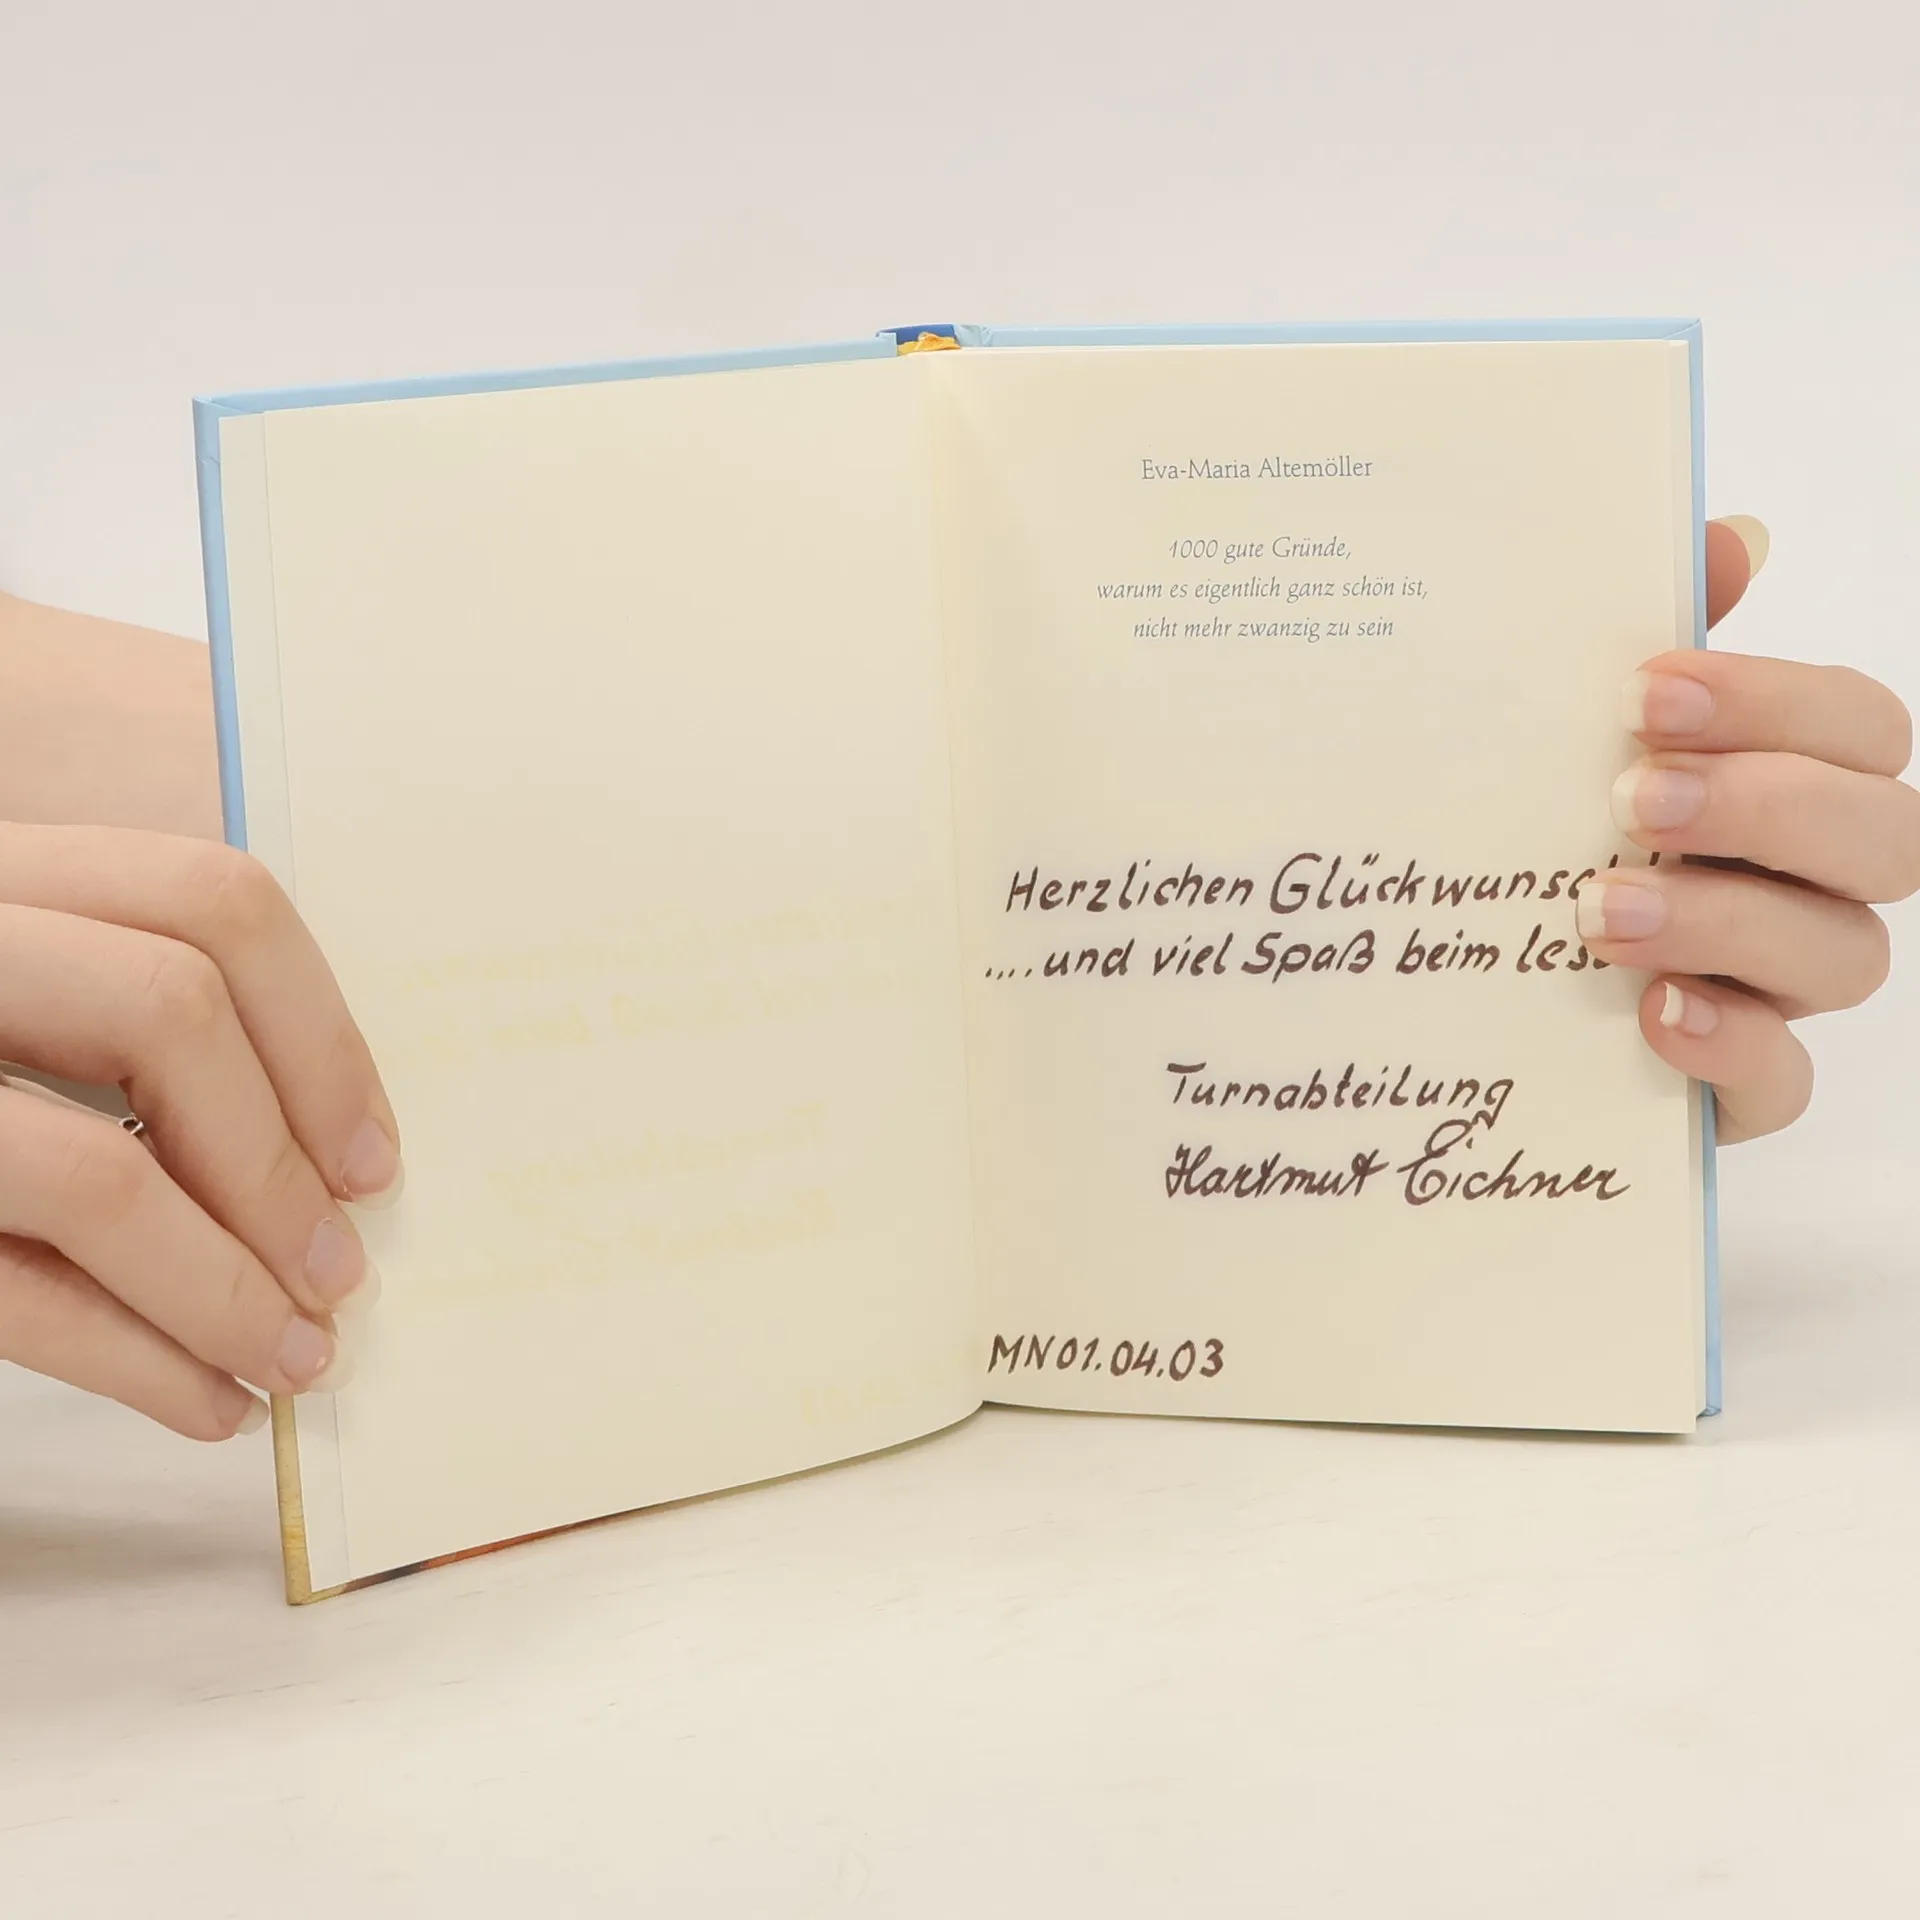 Eva-Maria Altemöller
1000 gute Gründe,
warum es eigentlich ganz schön ist,
nicht mehr zwanzig zu sein
Herzlichen
....und viel Spaß beim
Turnabteilung
Hartmut Eichner
MN 01.04.03